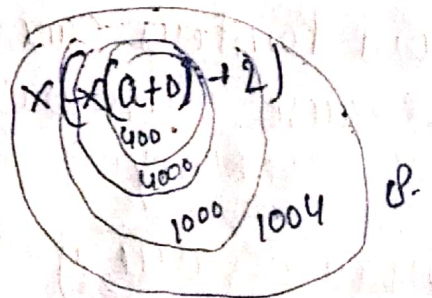 x(x(a+b)+2)
400
4000
1000 1004 8.